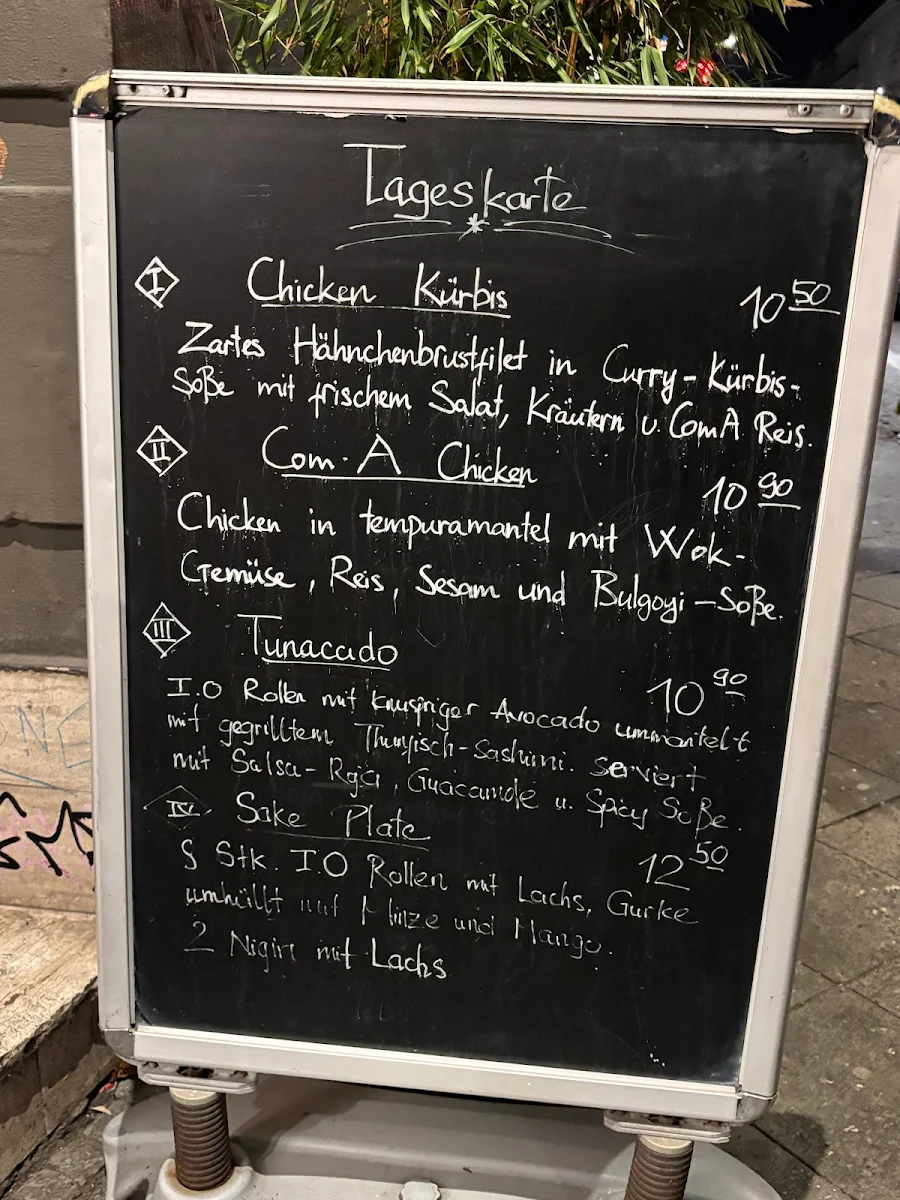 Tageskarte
I Chicken Kürbis 10 50
Zartes Hähnchenbrustfilet in Curry-Kürbis-
Soße mit frischem Salat, Kräutern u. ComA Reis.
II Com·A Chicken 10 90
Chicken in tempuramantel mit Wok-
Gemüse, Reis, Sesam und Bulgogi-Soße.
III Tunacado 10 90
I.O Rollen mit knuspriger Avocado ummantelt
mit gegrilltem Thunfisch-Sashimi. Serviert
mit Salsa-Roja, Guacamole u. Spicy Soße.
IV Sake Plate 12 50
Stk. I.O Rollen mit Lachs, Gurke
umhüllt mit Minze und Mango.
2 Nigiri mit Lachs